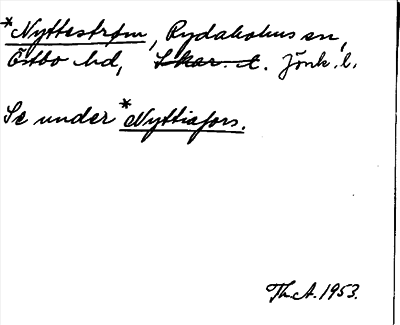 *Nytteström, Rydaholms sn,
Östbo hd, Skar. t. Jönk. l.
Se under *Nyttiafors.
Th.A. 1953.